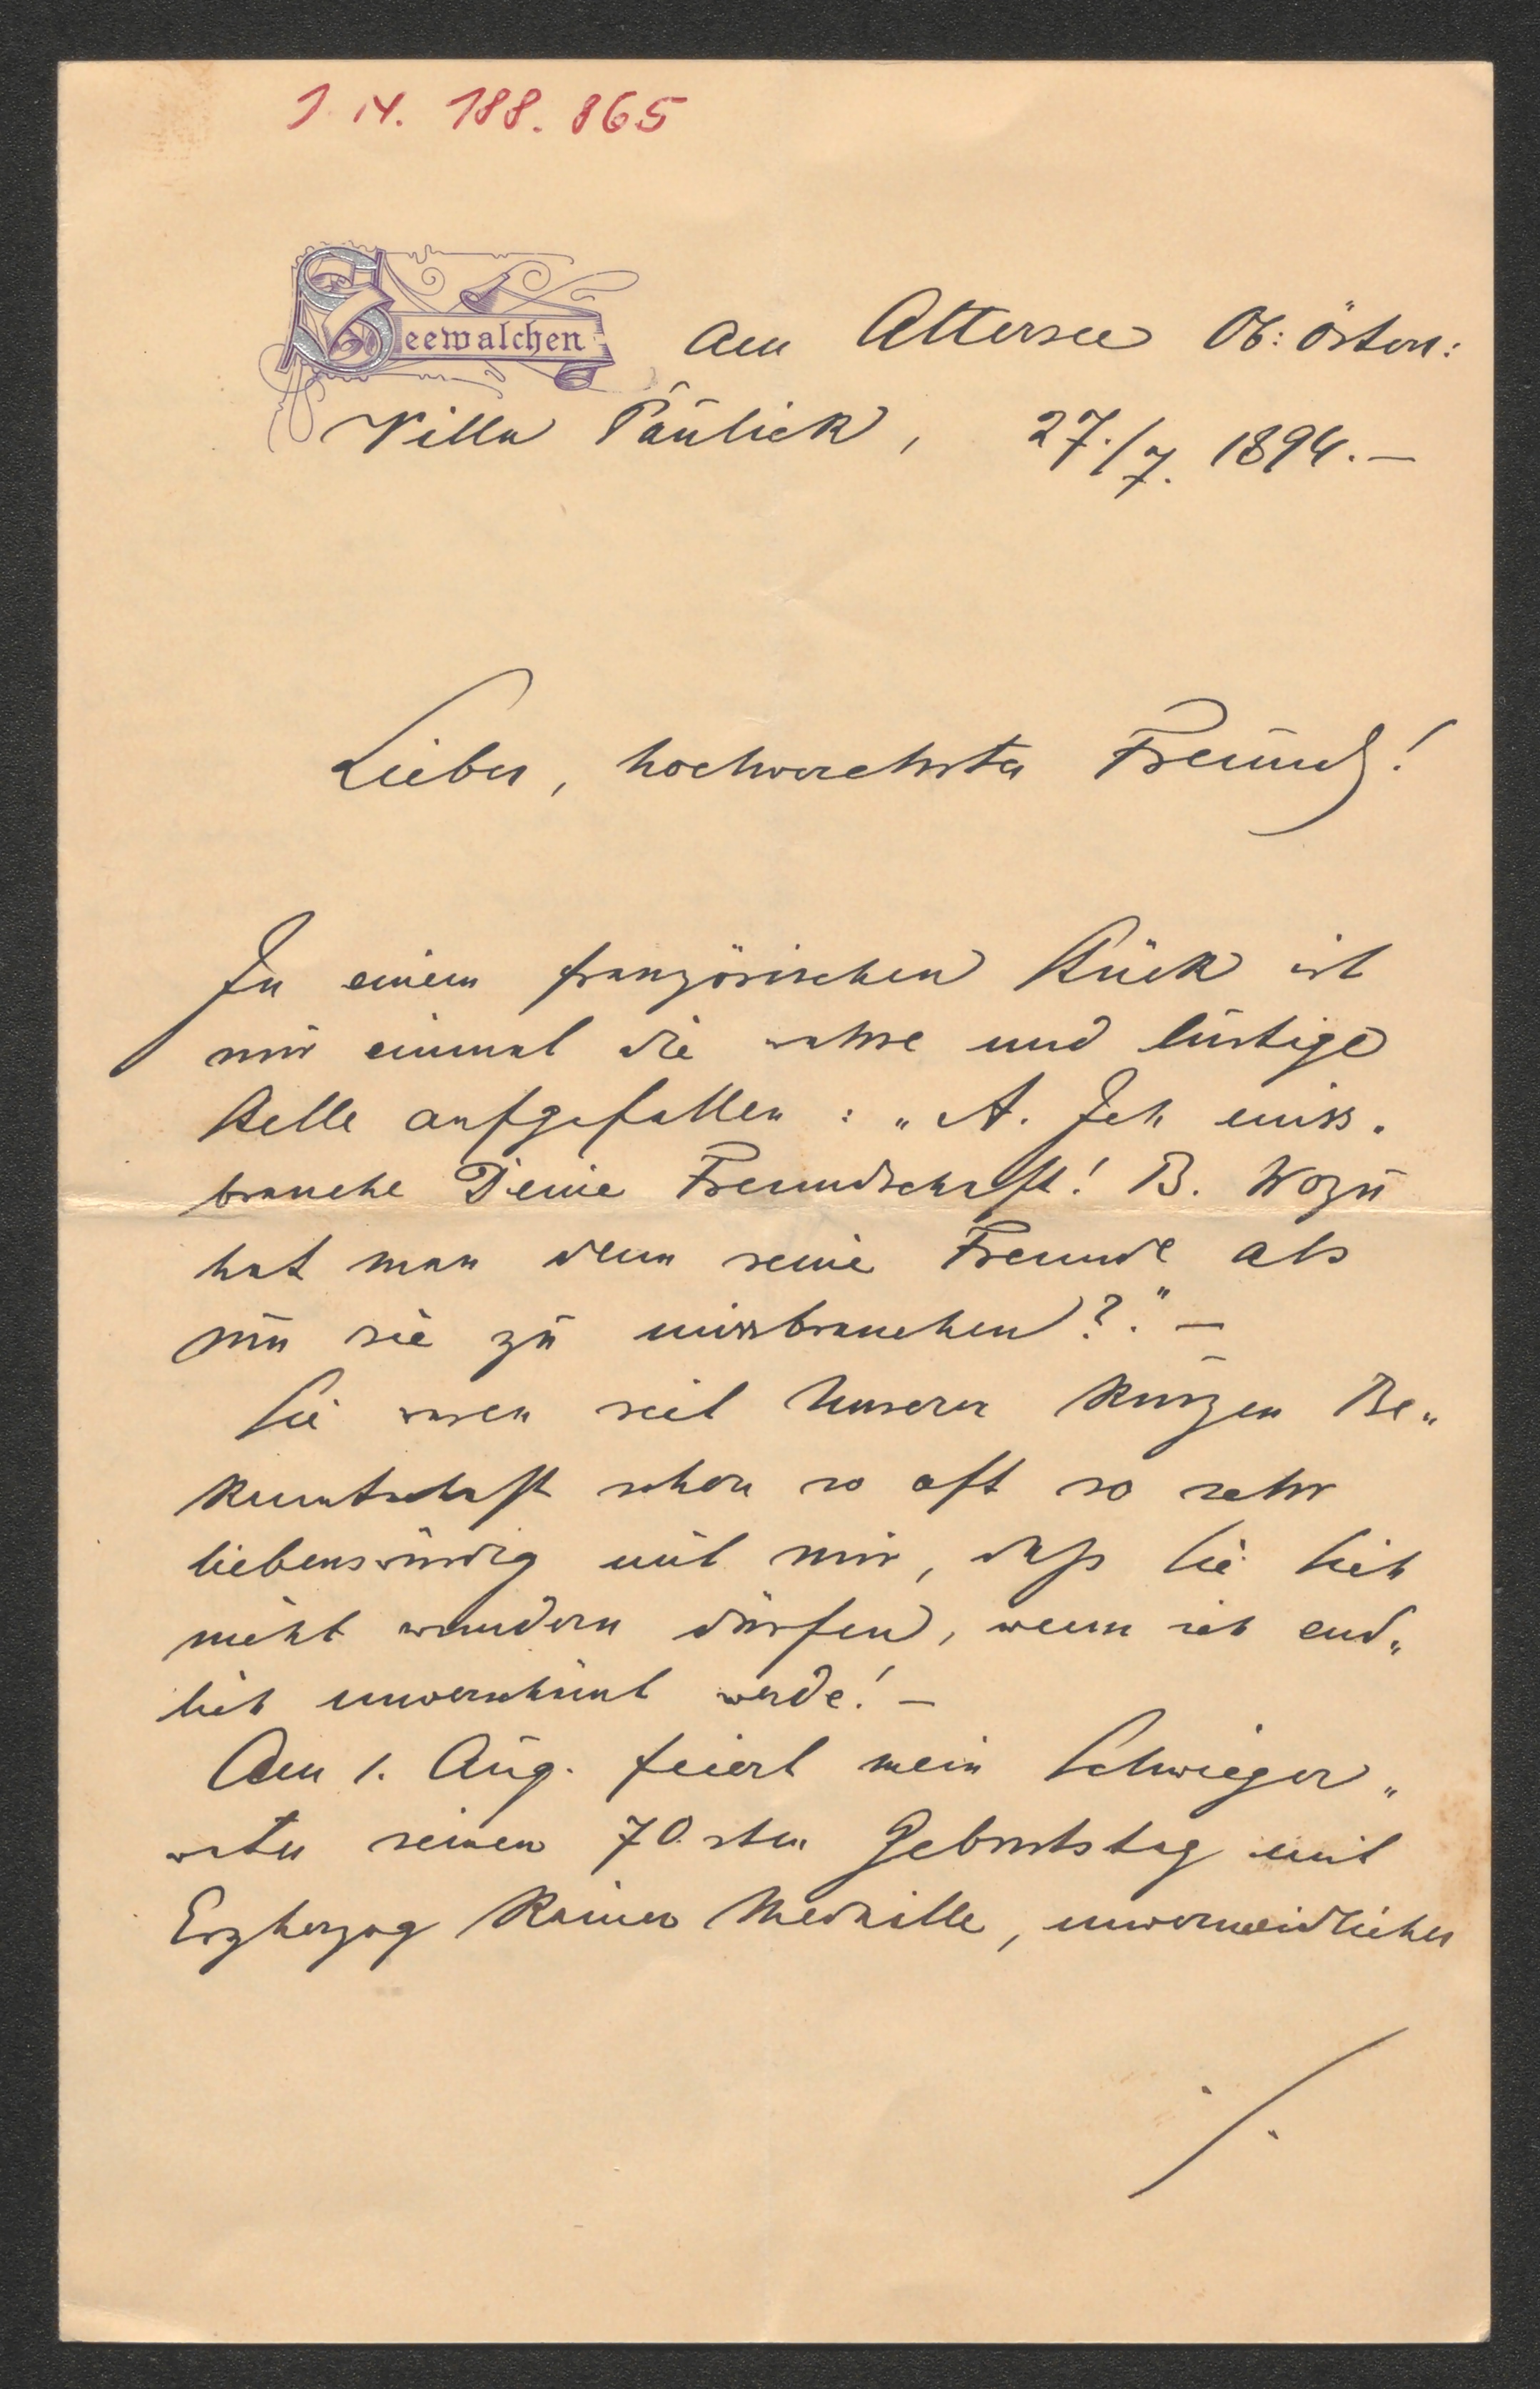 I. N. 188.865
Seewalchen am Attersee Ob: Österr:
Villa Paulick, 27./7. 1894.—
Lieber, hochverehrter Freund!
In einem französischen Stück ist
mir einmal die wahre und lustige
Stelle aufgefallen: „A. Ich miss„
brauche Deine Freundschaft! B. Wozu
hat man denn seine Freunde als
um sie zu missbrauchen?." —
Sie waren seit Unserer kurzen Be„
kanntschaft schon so oft so sehr
liebenswürdig mit mir, daß Sie Sich
nicht wundern dürfen, wenn ich end„
lich unverschämt werde! —
Am 1. Aug. feiert mein Schwieger„
vater seinen 70.sten Geburtstag mit
Erzherzog Rainer Medaille, unvermeidlicher
./.